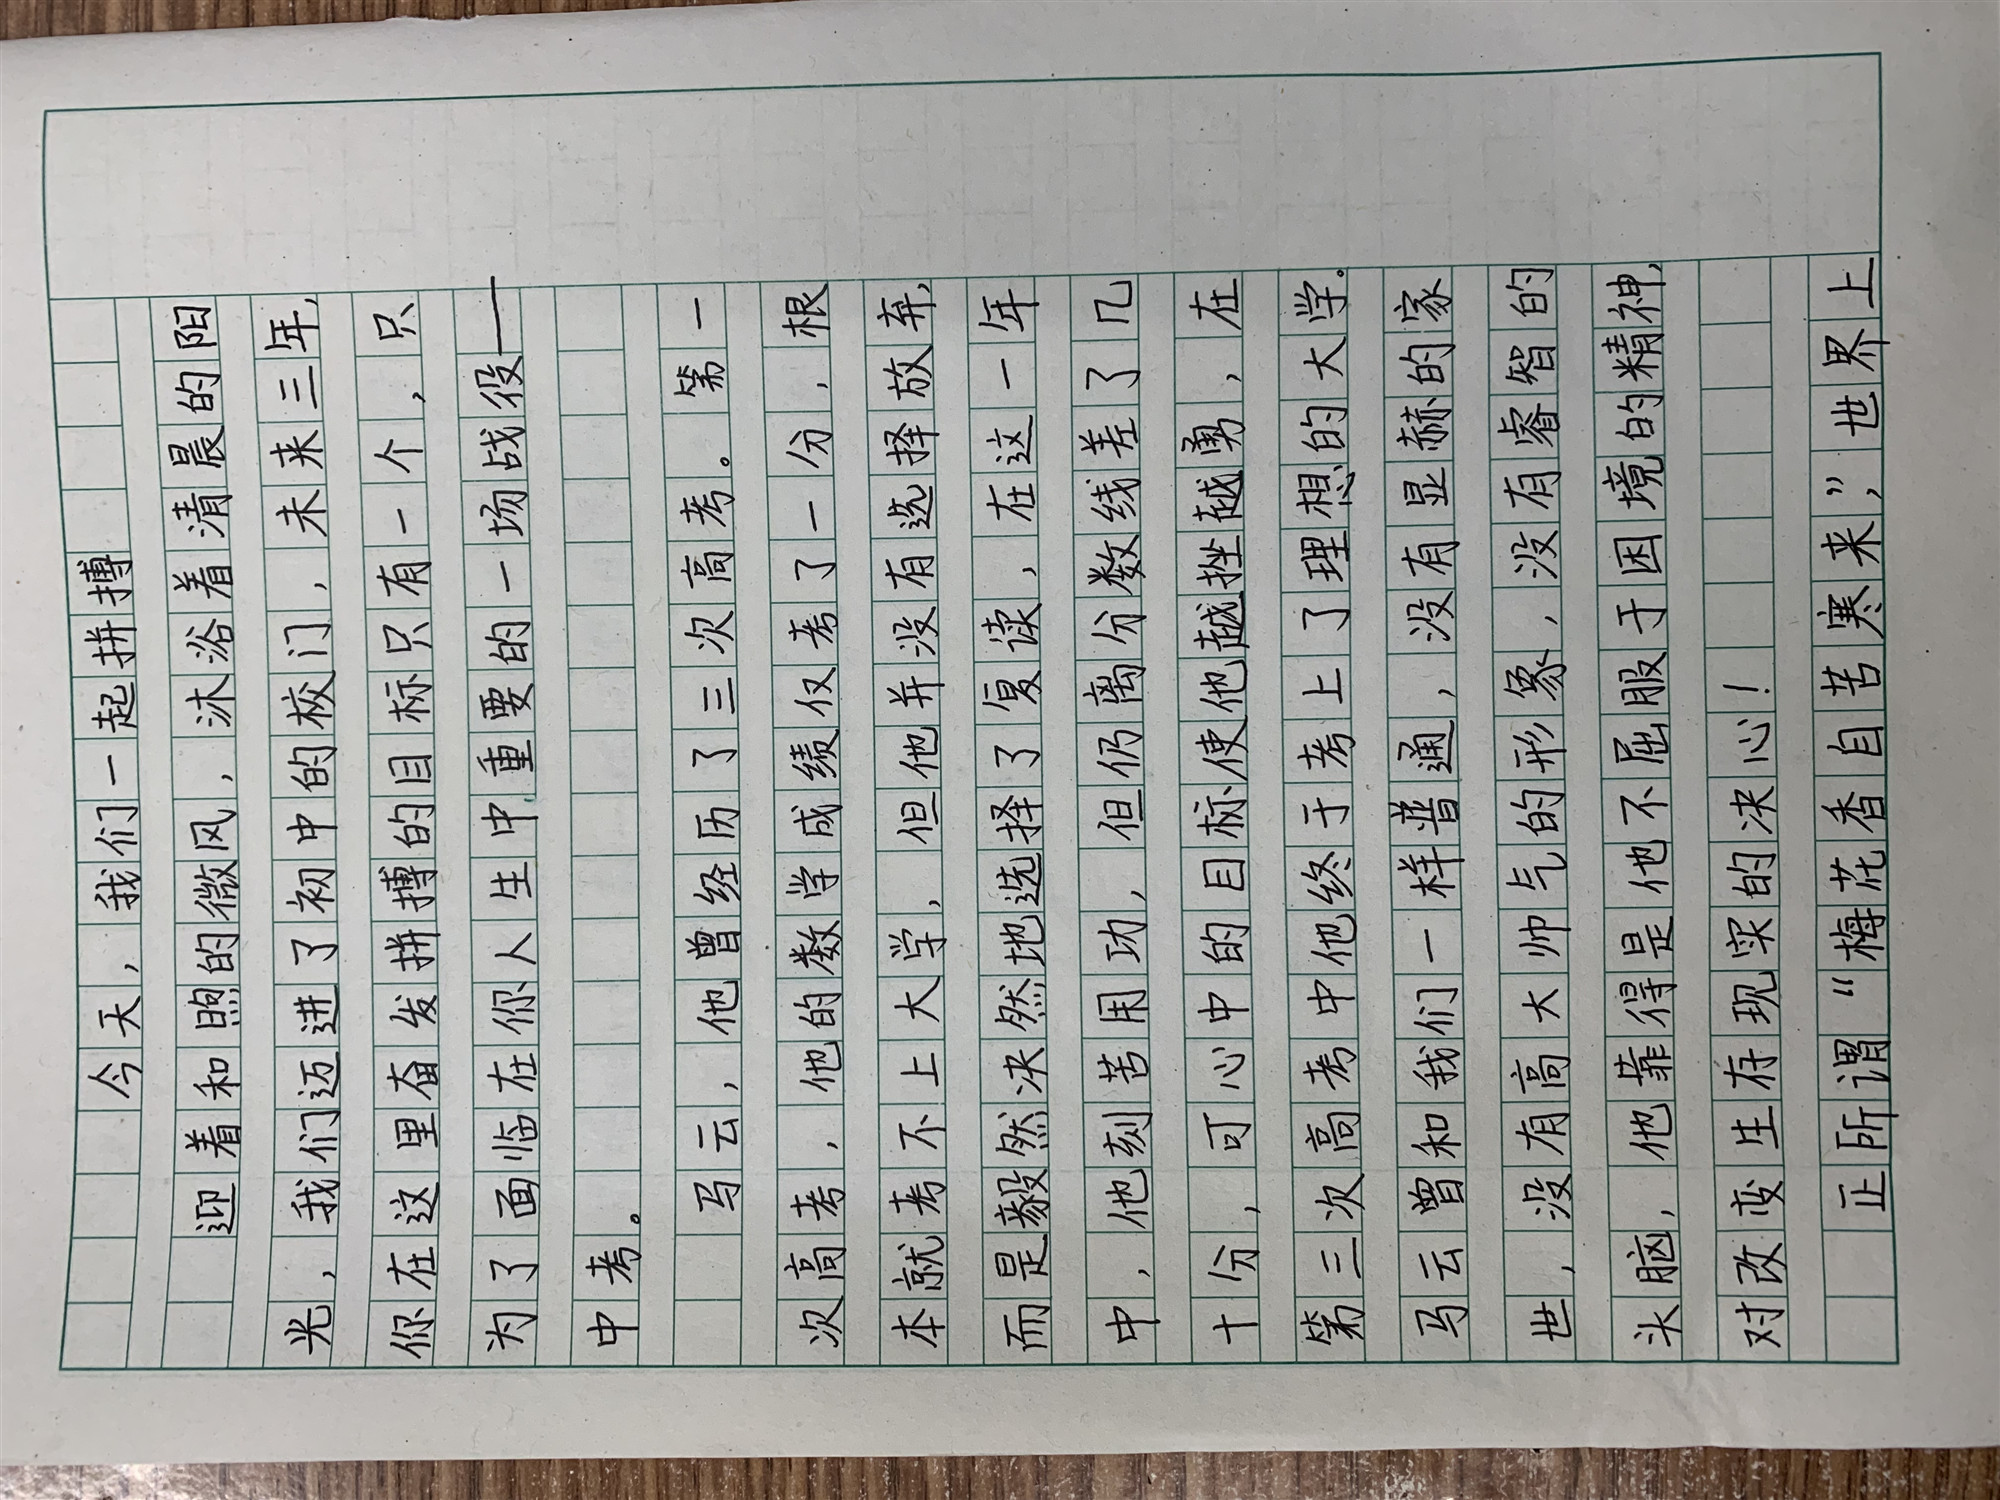 今天，我们一起拼搏
迎着和煦的微风，沐浴着清晨的阳
光，我们迈进了初中的校门，未来三年，
你在这里奋发拼搏的目标只有一个，只
为了面临在你人生中重要的一场战役——
中考。
马云，他曾经历了三次高考。第一
次高考，他的数学成绩仅考了一分，根
本就考不上大学，但他并没有选择放弃，
而是毅然决然地选择了复读，在这一年
中，他刻苦用功，但仍离分数线差了几
十分，可心中的目标使他越挫越勇，在
第三次高考中他终于考上了理想的大学。
马云曾和我们一样普通，没有显赫的家
世，没有高大帅气的形象，没有睿智的
头脑，他靠得是他不屈服于困境的精神，
对改变生存现实的决心！
正所谓“梅花香自苦寒来，”世界上